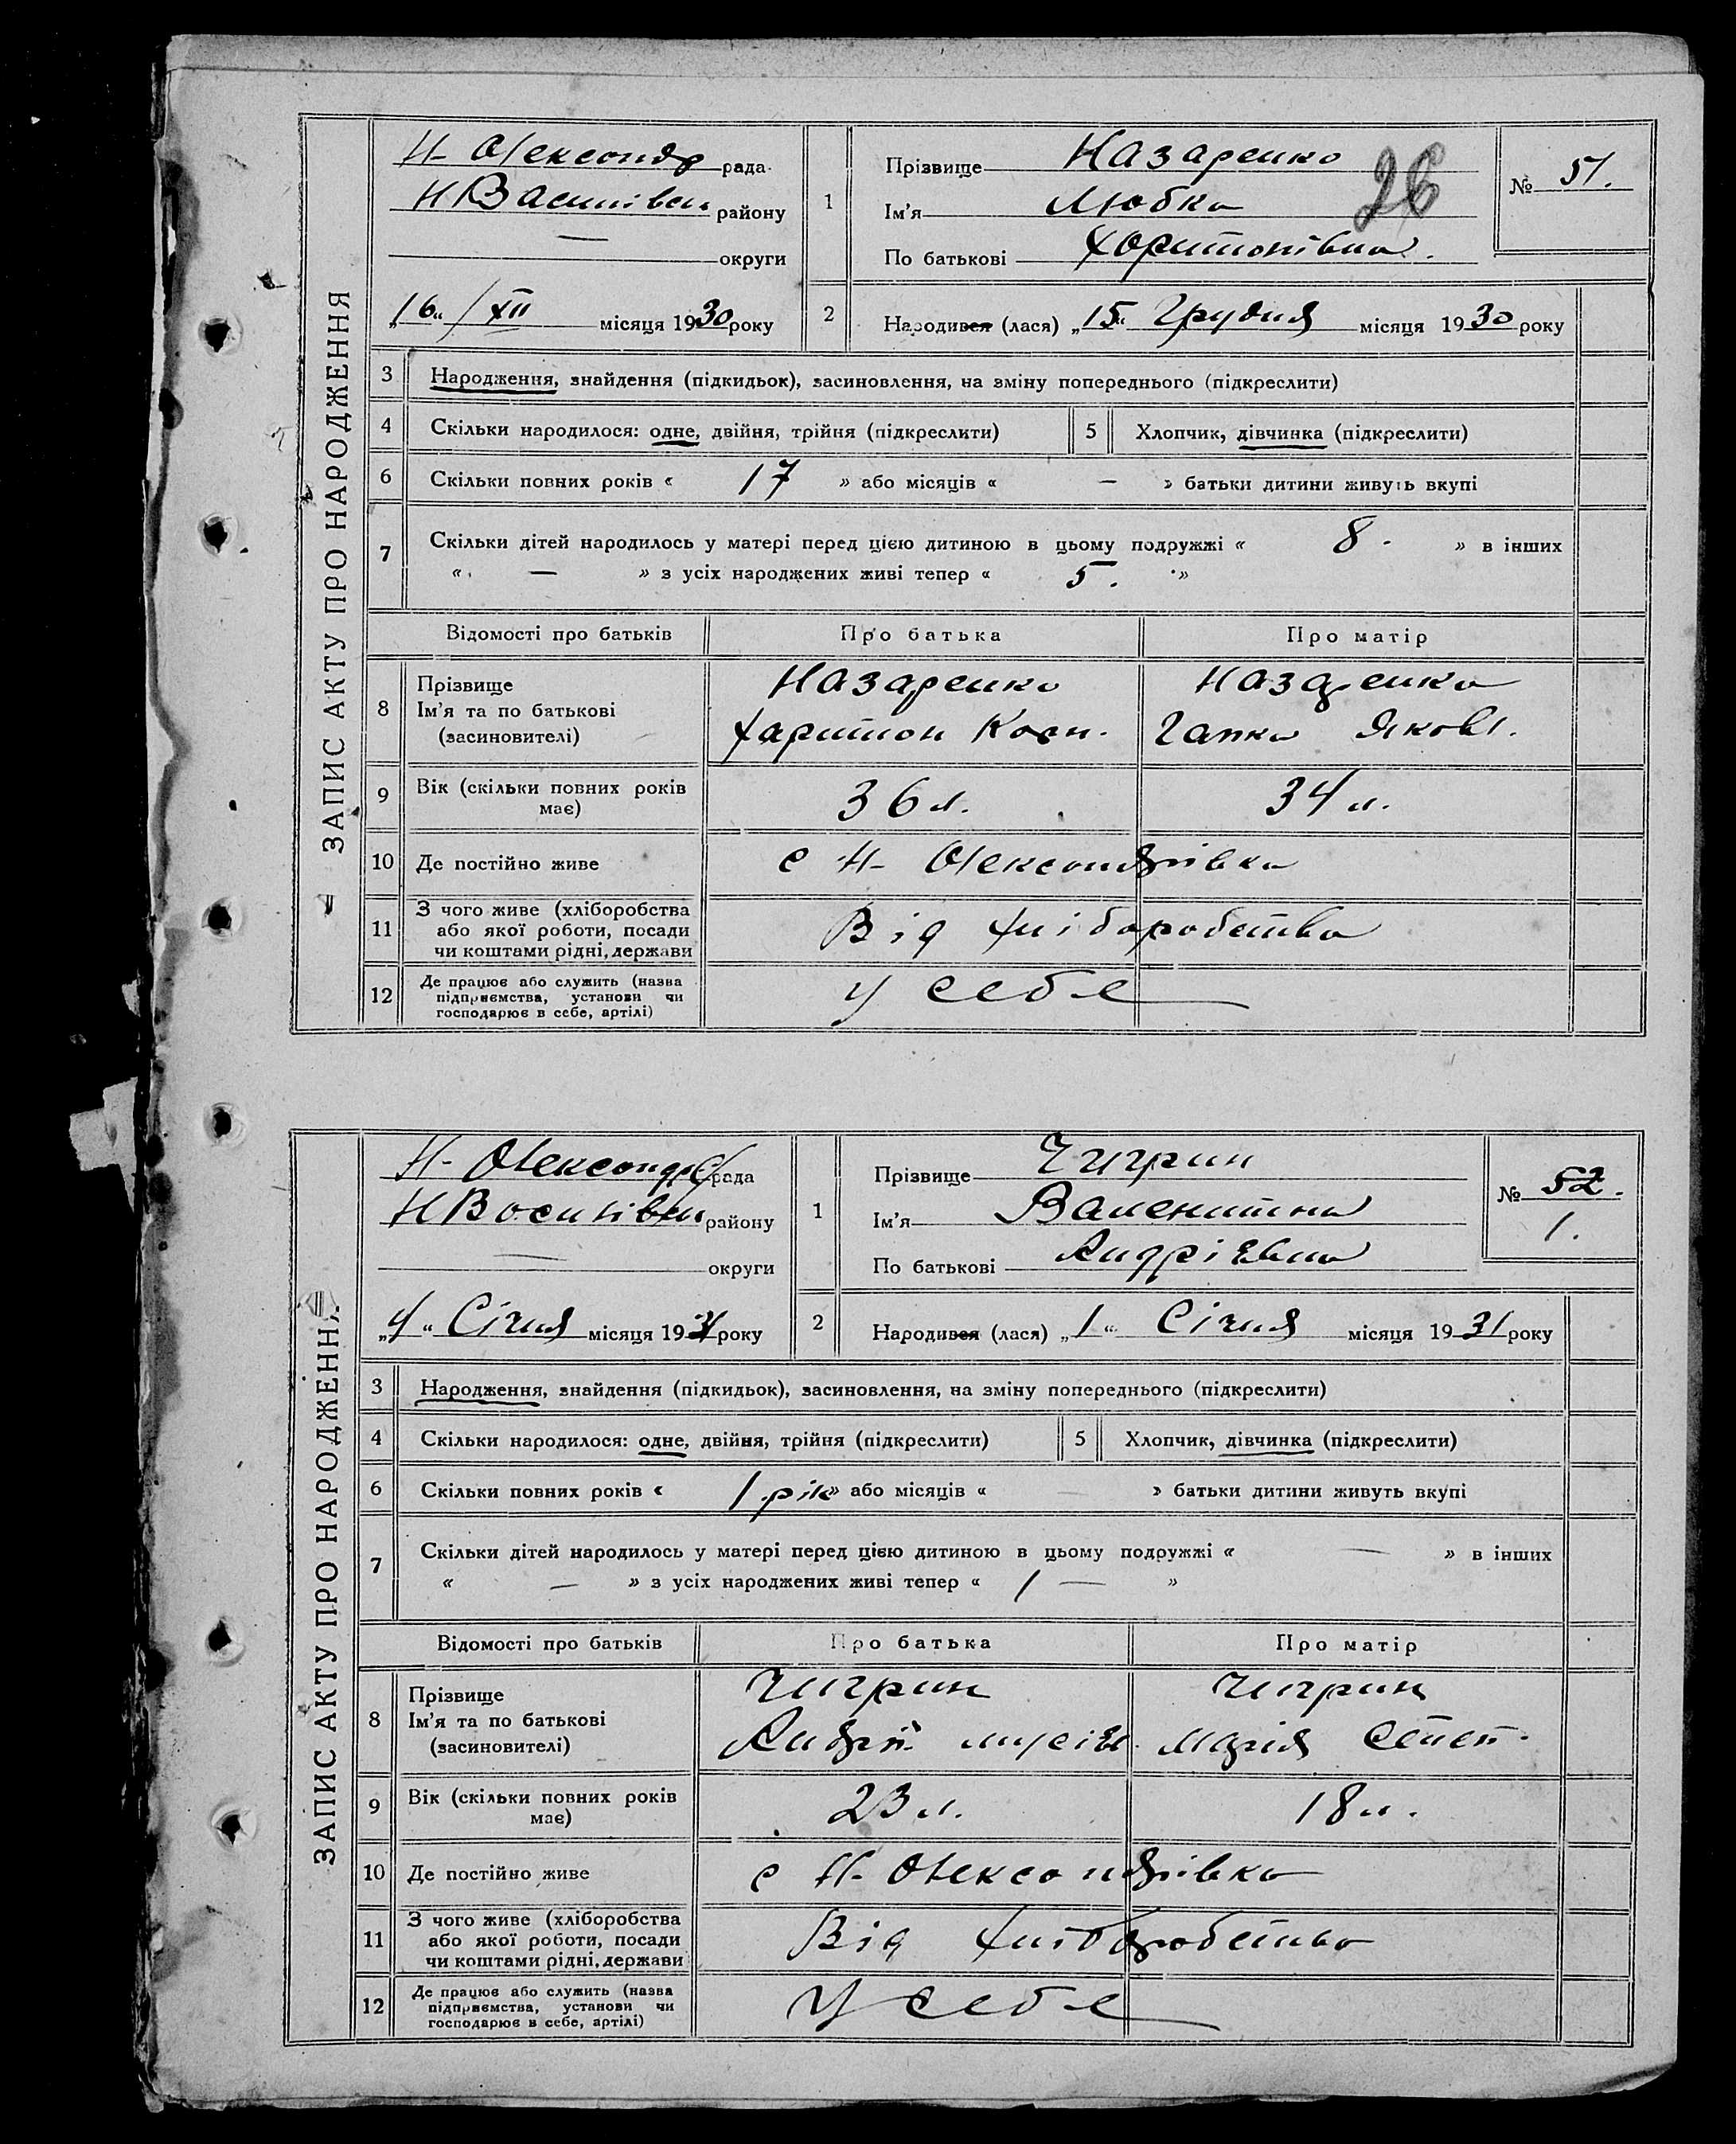 ЗАПИС АКТУ ПРО НАРОДЖЕННЯ
Н- Олександр рада
Н Василівськ району
— округи
„16“ / XII місяця 1930 року
1
Прізвище Назаренко
Ім'я Любка
По батькові Харитонівна.
26
№ 51.
2
Народився (лася) „15“ Грудня місяця 1930 року
3 Народження, знайдення (підкидьок), засиновлення, на зміну попереднього (підкреслити)
4 Скільки народилося: одне, двійня, трійня (підкреслити)
5 Хлопчик, дівчинка (підкреслити)
6 Скільки повних років « 17 » або місяців « — » батьки дитини живуть вкупі
7 Скільки дітей народилось у матері перед цією дитиною в цьому подружжі « 8. » в інших
« — » з усіх народжених живі тепер « 5. »
Відомості про батьків Про батька Про матір
8 Прізвище Назаренко Назаренко
Ім'я та по батькові Харитон Косн. Гапка Яковл.
(засиновителі)
9 Вік (скільки повних років має) 36 л. 34 л.
10 Де постійно живе с Н- Олександрівка
11 З чого живе (хліборобства
або якої роботи, посади Від хліборобства
чи коштами рідні, держави
12 Де працює або служить (назва
підприємства, установи чи у себе
господарює в себе, артілі)
ЗАПИС АКТУ ПРО НАРОДЖЕННЯ
Н- Олександр рада
Н Василівськ району
— округи
„4“ Січня місяця 1931 року
1
Прізвище Чигрин
Ім'я Валентина
По батькові Андрієвна
№ 52.
1.
2
Народився (лася) „1“ Січня місяця 1931 року
3 Народження, знайдення (підкидьок), засиновлення, на зміну попереднього (підкреслити)
4 Скільки народилося: одне, двійня, трійня (підкреслити)
5 Хлопчик, дівчинка (підкреслити)
6 Скільки повних років « 1 рік » або місяців « — » батьки дитини живуть вкупі
7 Скільки дітей народилось у матері перед цією дитиною в цьому подружжі « — » в інших
« — » з усіх народжених живі тепер « 1 — »
Відомості про батьків Про батька Про матір
8 Прізвище Чигрин Чигрин
Ім'я та по батькові Андрій Мусієв. Марія Степ.
(засиновителі)
9 Вік (скільки повних років має) 23 л. 18 л.
10 Де постійно живе с Н- Олександрівка
11 З чого живе (хліборобства
або якої роботи, посади Від хліборобства
чи коштами рідні, держави
12 Де працює або служить (назва
підприємства, установи чи У себе
господарює в себе, артілі)